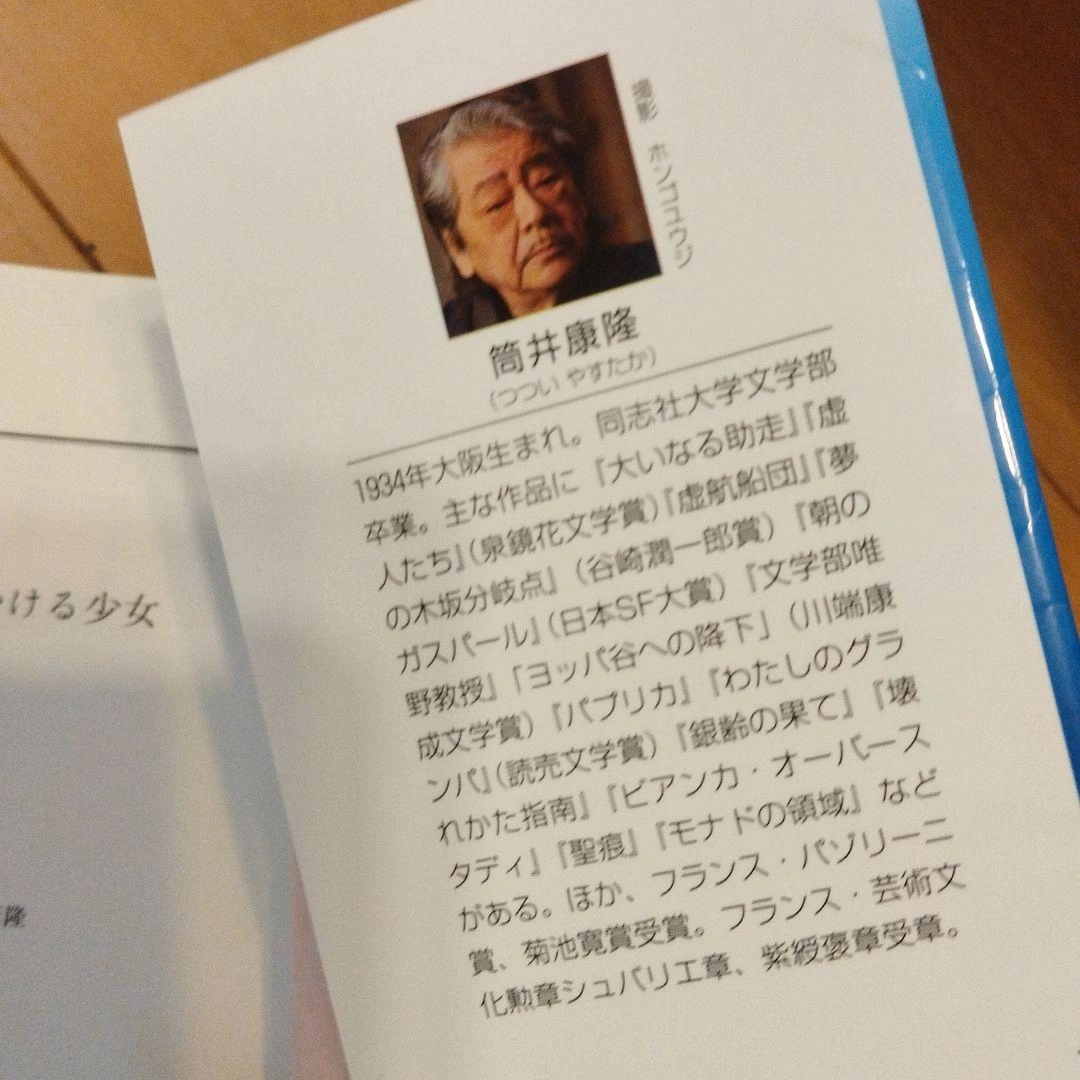 撮影 ホンゴユウジ
筒井康隆
(つつい やすたか)
1934年大阪生まれ。同志社大学文学部
卒業。主な作品に『大いなる助走』『虚
人たち』(泉鏡花文学賞)『虚航船団』『夢
の木坂分岐点』(谷崎潤一郎賞)『朝の
ガスパール』(日本SF大賞)『文学部唯
野教授』『ヨッパ谷への降下』(川端康
成文学賞)『パプリカ』『わたしのグラ
ンパ』(読売文学賞)『銀齢の果て』『壊
れかた指南』『ビアンカ・オーバース
タディ』『聖痕』『モナドの領域』など
がある。ほか、フランス・パゾリーニ
賞、菊池寛賞受賞。フランス・芸術文
化勲章シュバリエ章、紫綬褒章受章。
ける少女
隆